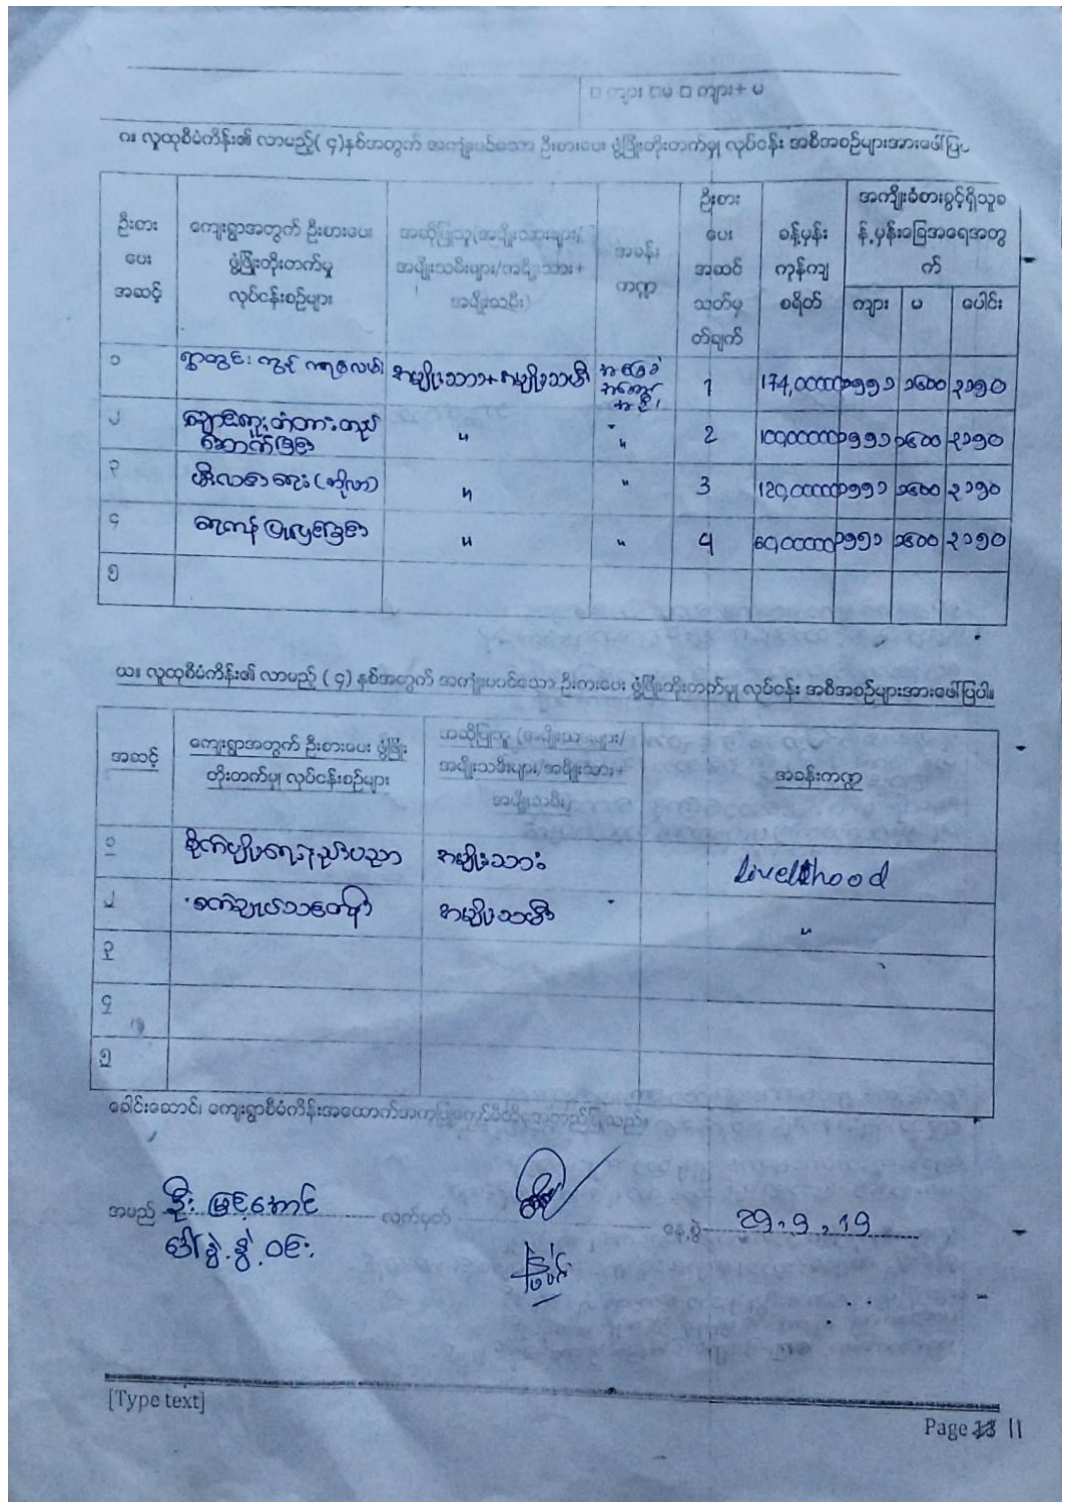 □ ကျား □မ □ ကျား+ မ
ဂ။ လူထုစီမံကိန်း၏ လာမည့်( ၄)နှစ်အတွက် အကျုံးဝင်သော ဦးစားပေး ဖွံ့ဖြိုးတိုးတက်မှု လုပ်ငန်း အစီအစဉ်များအားဖေါ်ပြ
ဦးစားပေးအဆင့်
ကျေးရွာအတွက် ဦးစားပေး ဖွံ့ဖြိုးတိုးတက်မှု လုပ်ငန်းစဉ်များ
အဆိုပြုသူ(အမျိုးသားများ/အမျိုးသမီးများ/အမျိုးသား+အမျိုးသမီး)
အခန်းကဏ္ဍ
ဦးစားပေးအဆင့်သတ်မှတ်ချက်
ခန့်မှန်းကုန်ကျစရိတ်
အကျိုးခံစားခွင့်ရှိသူခန့်မှန်းခြေအရေအတွက်
ကျား မ ပေါင်း
၁ ရွာတွင်း ကွန် အမျိုးသား+အမျိုးသမီး အခြေခံ 1 ၁၅၅၁ ၁၆၀၀ ၃၁၅၀
၂ တံတား " " 2 ၁၅၅၁ ၁၆၀၀ ၃၁၅၀
ဆောက်ခြင်း
၃ " " 3 ၁၅၅၁ ၁၆၀၀ ၃၁၅၀
၄ ရေကန် ပြုပြင်ခြင်း " " 4 ၁၅၅၁ ၁၆၀၀ ၃၁၅၀
၅
ဃ။ လူထုစီမံကိန်း၏ လာမည့် ( ၄) နှစ်အတွက် အကျုံးမဝင်သော ဦးစားပေး ဖွံ့ဖြိုးတိုးတက်မှု လုပ်ငန်း အစီအစဉ်များအားဖေါ်ပြပါ။
အဆင့်
ကျေးရွာအတွက် ဦးစားပေး ဖွံ့ဖြိုးတိုးတက်မှု လုပ်ငန်းစဉ်များ
အဆိုပြုသူ (အမျိုးသားများ/အမျိုးသမီးများ/အမျိုးသား+အမျိုးသမီး)
အခန်းကဏ္ဍ
၁ စိုက်ပျိုးရေးနည်းပညာ အမျိုးသား livelihood
၂ စက်ချုပ်သင်တန်း အမျိုးသမီး "
၃
၄
၅
ခေါင်းဆောင်၊ ကျေးရွာစီမံကိန်းအထောက်အကူပြုကော်မီတီမှအတည်ပြုသည်။
အမည် ဦး မြင့်အောင် လက်မှတ် နေ့စွဲ 29.9.19
ဒေါ်နွဲ့နွဲ့ဝင်း
[Type text]
Page 11